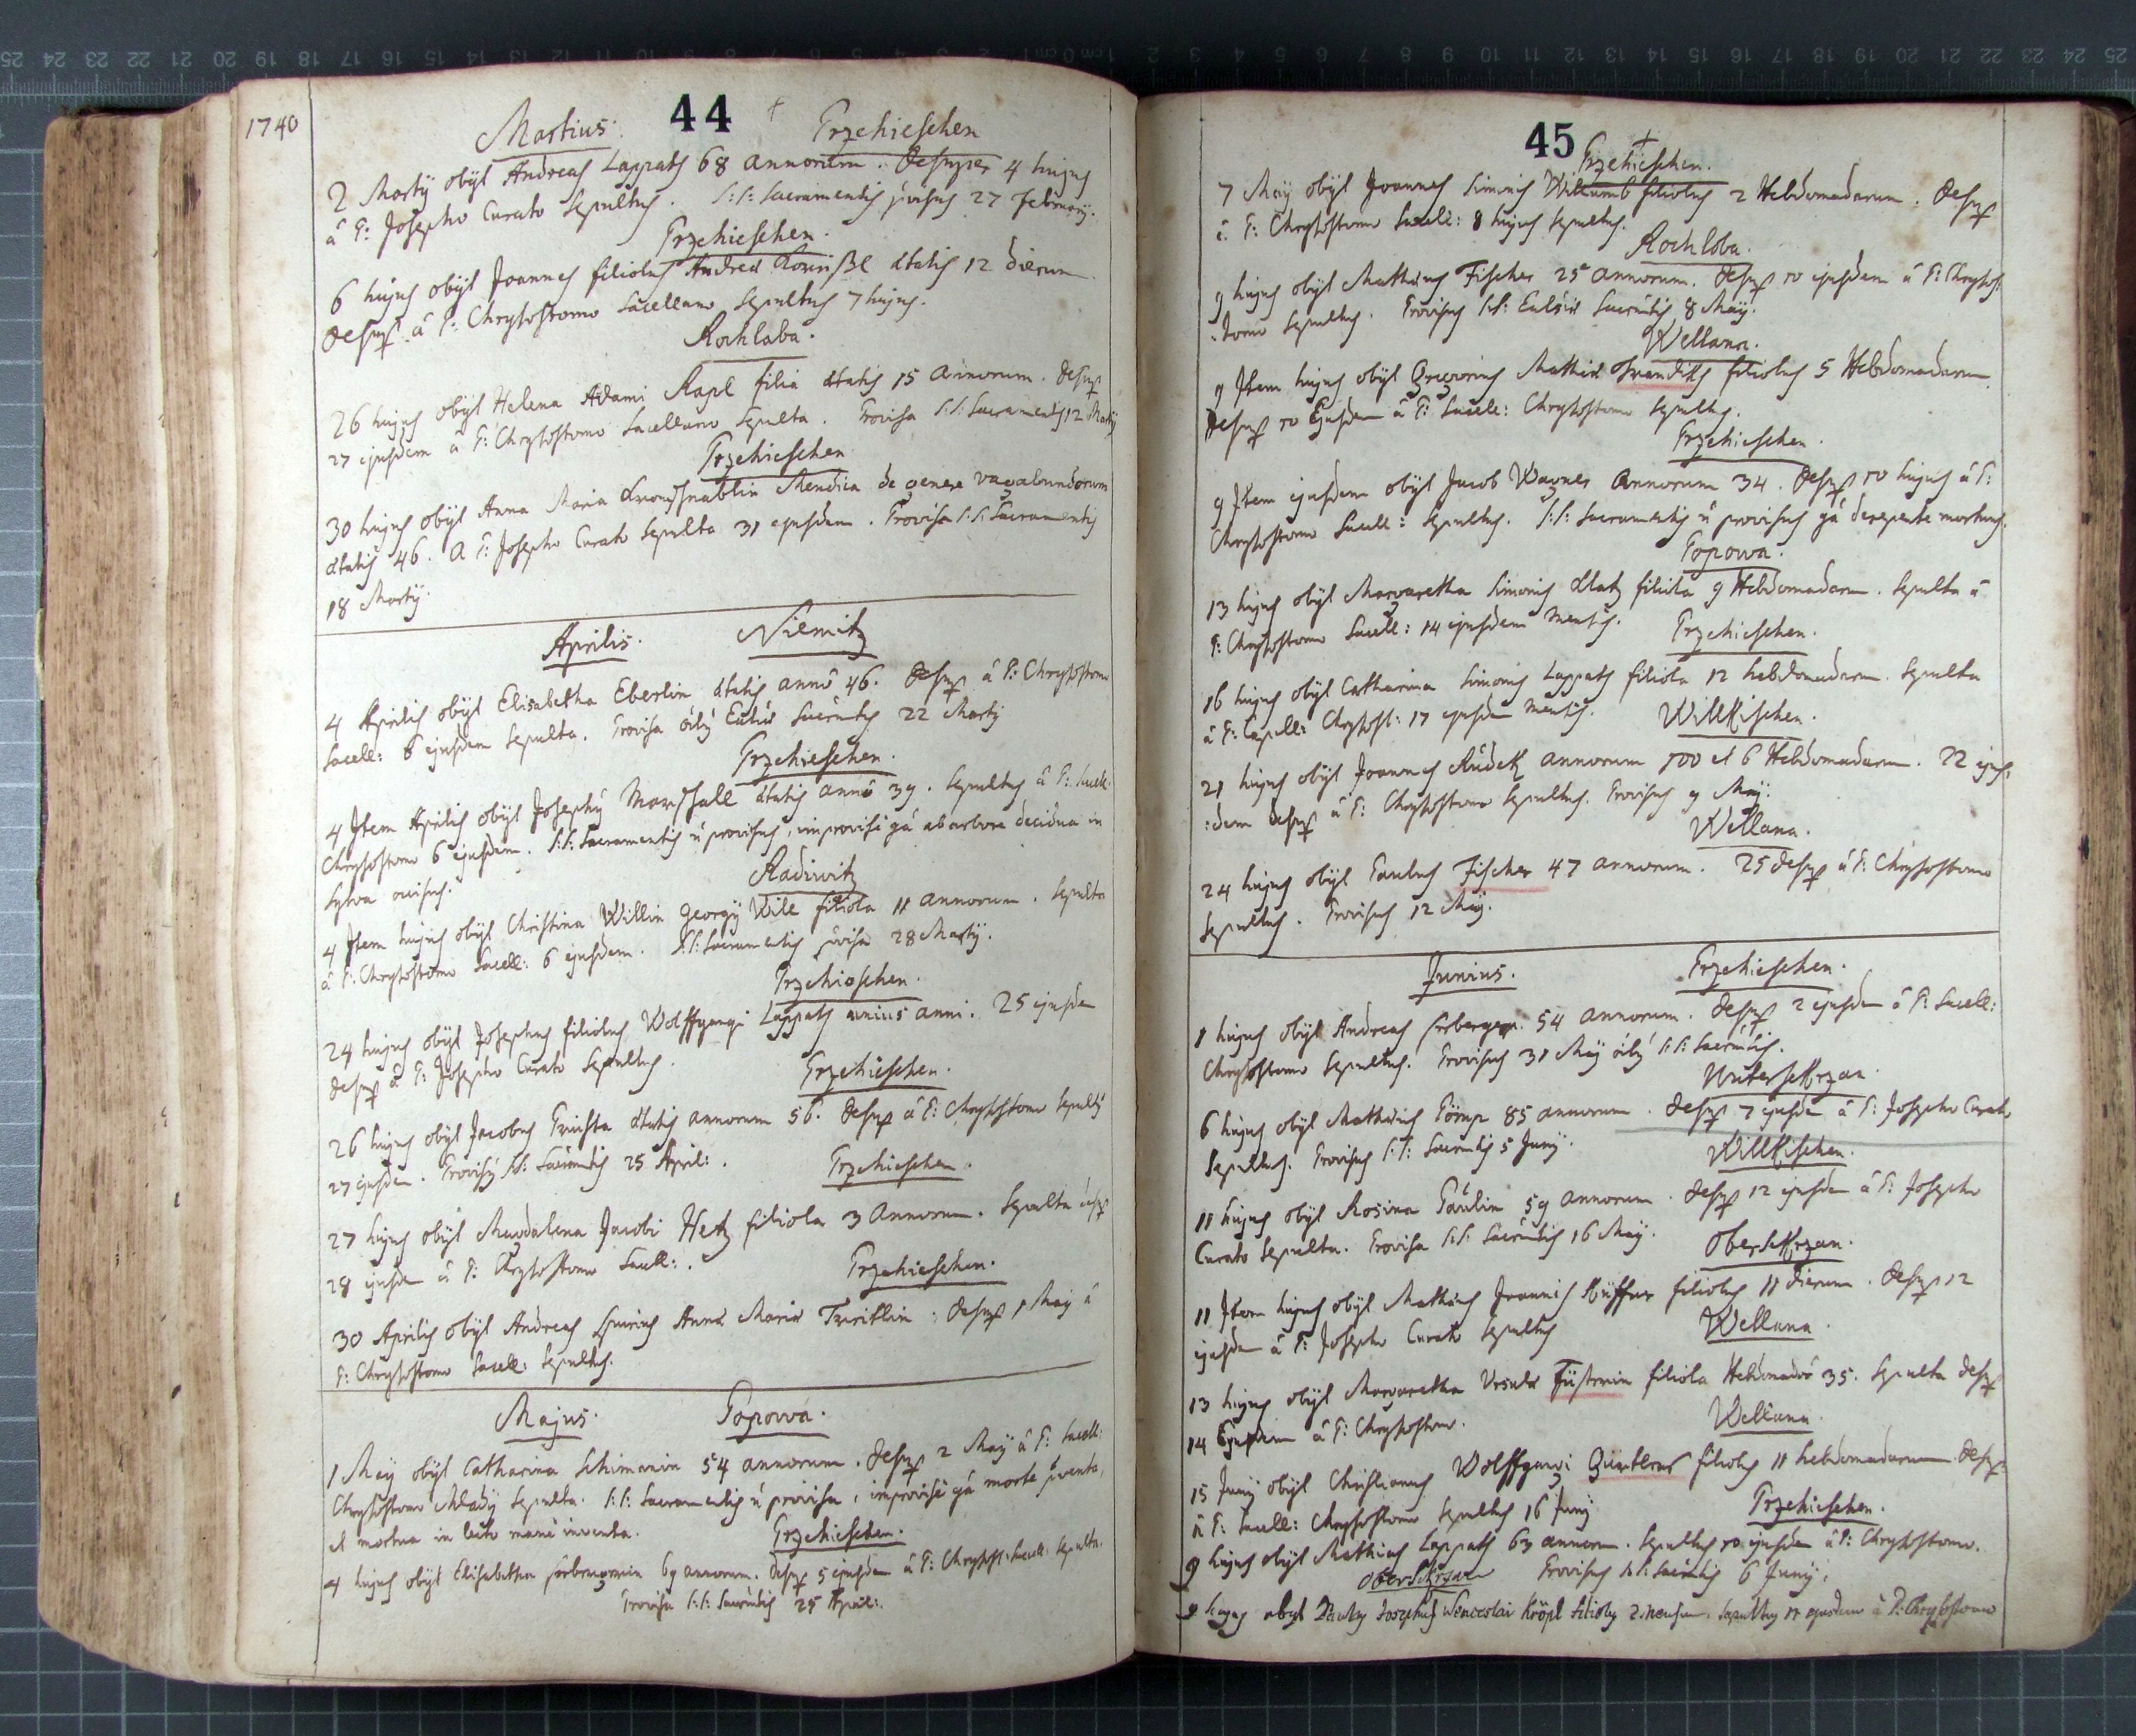 1740
Martius. 44 Przehieschen
2 Martÿ obÿt Andreas Lappath 68 annorum. Desuper 4 hujus
â P: Josepho Curato sepultus. S:S: Sacramentis pvisus 27 Februarÿ.
Przehieschen.
6 hujus obÿt Joannes filiolus Andreæ ætatis 12 dierum
Desup â P: Chrysostomo Sacellano sepultus 7 hujus.
Rochlaba.
26 hujus obÿt Helena Adami Rapl filia ætatis 15 annorum. Desup
27 ejusdem â P: Chrysostomo Sacellano sepulta. Provisa S:S: Sacramentis 12 Martÿ
Przehieschen
30 hujus obÿt Anna Maria Mendica de genere vagabundorum
ætatis 46. A P: Josepho Curato sepulta 31 ejusdem. Provisa S:S: Sacramentis
18 Martÿ.
Aprilis. Niemitz
4 Aprilis obÿt Elisabetha Eberlin ætatis annô 46. Desup â P: Chrysostomo
Sacell: 6 ejusdem sepulta. Provisa Sacrmtis 22 Martÿ
Przehieschen.
4 Item Aprilis obÿt Josephus Marschall ætatis annô 39. sepultus â P: Sacell:
Chrysostomo 6 ejusdem. S:S: Sacramentis ñ provisus, improvise qa ab arbore decidua in
sylva occisus.
Radiwitz
4 Item hujus obÿt Christina Willin Georgÿ Will filiola 11 annorum. Sepulta
â P: Chrysostomo Sacell: 6 ejusdem. S:S: Sacramentis pvisa 28 Martÿ.
Przehieschen.
24 hujus obÿt Josephus filiolus Wolffgangi Lappath unius anni. 25 ejusdem
desup â P: Josepho Curato sepultus.
Przehieschen.
26 hujus obÿt Jacobus ætatis annorum 56. Desup â P: Chrysostomo sepultus
27 ejusdem. Provisus S:S: Sacrmtis 25 April:.
Przehieschen.
27 hujus obÿt Magdalena Jacobi Hetz filiola 3 Annorum. Sepulta desup
28 ejusdem â P: Chrysostomo Sacell:.
Przehieschen.
30 Aprilis obÿt Andreas spurius Annæ Mariæ. Desup 1 Maÿ â
P: Chrysostomo Sacell: sepultus.
Majus. Popowa.
1 Maÿ obÿt Catharina 54 annorum. Desup 2 Maÿ â P: Sacell:
Chrysostomo Mladÿ sepulta. S:S: Sacramentis ñ provisa, improvise qa morte pventa,
et mortua in lecto mane inventa.
Przehieschen.
4 hujus obÿt Elisabetha 69 annorum. Desup 5 ejusdem â P: Chrysost: Sacell: sepulta.
Provisa S:S: Sacrmtis 25 April:.
45 Przehieschen.
7 Maÿ obÿt Joannes Simonis filiolus 2 Hebdomadarum. Desup
â P: Chrysostomo Sacell: 8 hujus sepultus.
Rochloba.
9 hujus obÿt Mathæus Fischer 25 annorum. Desup 10 ejusdem â P: Chrysos:
:tomo sepultus. Provisus S:S: Sacrmtis 8 Maÿ.
Wellana.
9 Item hujus obÿt Gregorius Mathiæ filiolus 5 Hebdomadarum.
Desup 10 Ejusdem â P: Sacell: Chrysostomo sepultus.
Przehieschen.
9 Item ejusdem obÿt Jacob Wagner Annorum 34. Desup 10 hujus â P:
Chrysostomo Sacell: sepultus. S:S: Sacramentis ñ provisus qa derepente mortuus.
Popowa.
13 hujus obÿt Margaretha Simonis filiola 9 Hebdomadarum. Sepulta â
P: Chrysostomo Sacell: 14 ejusdem mensis.
Przehieschen.
16 hujus obÿt Catharina Simonis Lappath filiola 12 hebdomadarum. Sepulta
â P: Capell: Chrysost: 17 ejusdem mensis.
Willkischen.
21 hujus obÿt Joannes Rudek annorum 100 et 6 Hebdomadarum. 22 ejus:
:dem desup â P: Chrysostomo sepultus. Provisus 9 Maÿ.
Wellana.
24 hujus obÿt Paulus Fischer 47 annorum. 25 desup â P: Chrysostomo
sepultus. Provisus 12 Maÿ.
Junius. Przehieschen.
1 hujus obÿt Andreas 54 annorum. Desup 2 ejusdem â P: Sacell:
Chrysostomo sepultus. Provisus 31 Maÿ S:S: Sacrmtis.
Untersekrzan.
6 hujus obÿt Mathæus 85 annorum. Desup 7 ejusdem â P: Josepho Curato
sepultus. Provisus S:S: Sacrmtis 5 Junÿ.
Willkischen.
11 hujus obÿt Rosina Paulin 59 annorum. Desup 12 ejusdem â P: Josepho
Curato sepulta. Provisa S:S: Sacrmtis 16 Maÿ.
Obersekrzan.
11 Item hujus obÿt Mathias Joannis filiolus 11 dierum. Desup 12
ejusdem â P: Josepho Curato sepultus
Wellana.
13 hujus obÿt Margaretha Ursulæ filiola Hebdomadô 35. Sepulta desup
14 Ejusdem â P: Chrysostomo.
Wellana.
15 Junÿ obÿt Christianus Wolffgangi filiolus 11 hebdomadarum desup:
â P: Sacell: Chrysostomo sepultus 16 Junÿ
Przehieschen.
9 hujus obÿt Mathias Lappath 63 annorum. Sepultus 10 ejusdem â P: Chrysostomo.
Obersekrzan Provisus S:S: Sacrmtis 6 Junÿ.
9 hujus obÿt Josephus Wenceslai Kröpl filiolus 2 mensium. Sepultus 11 ejusdem â P: Chrysostomo